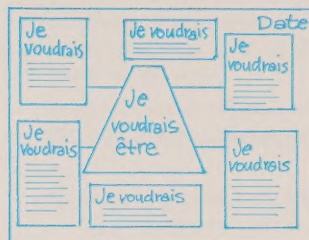 Date
Je
voudrais
Je voudrais
Je
voudrais
Je
voudrais
être
Je
voudrais
Je
voudrais
Je voudrais